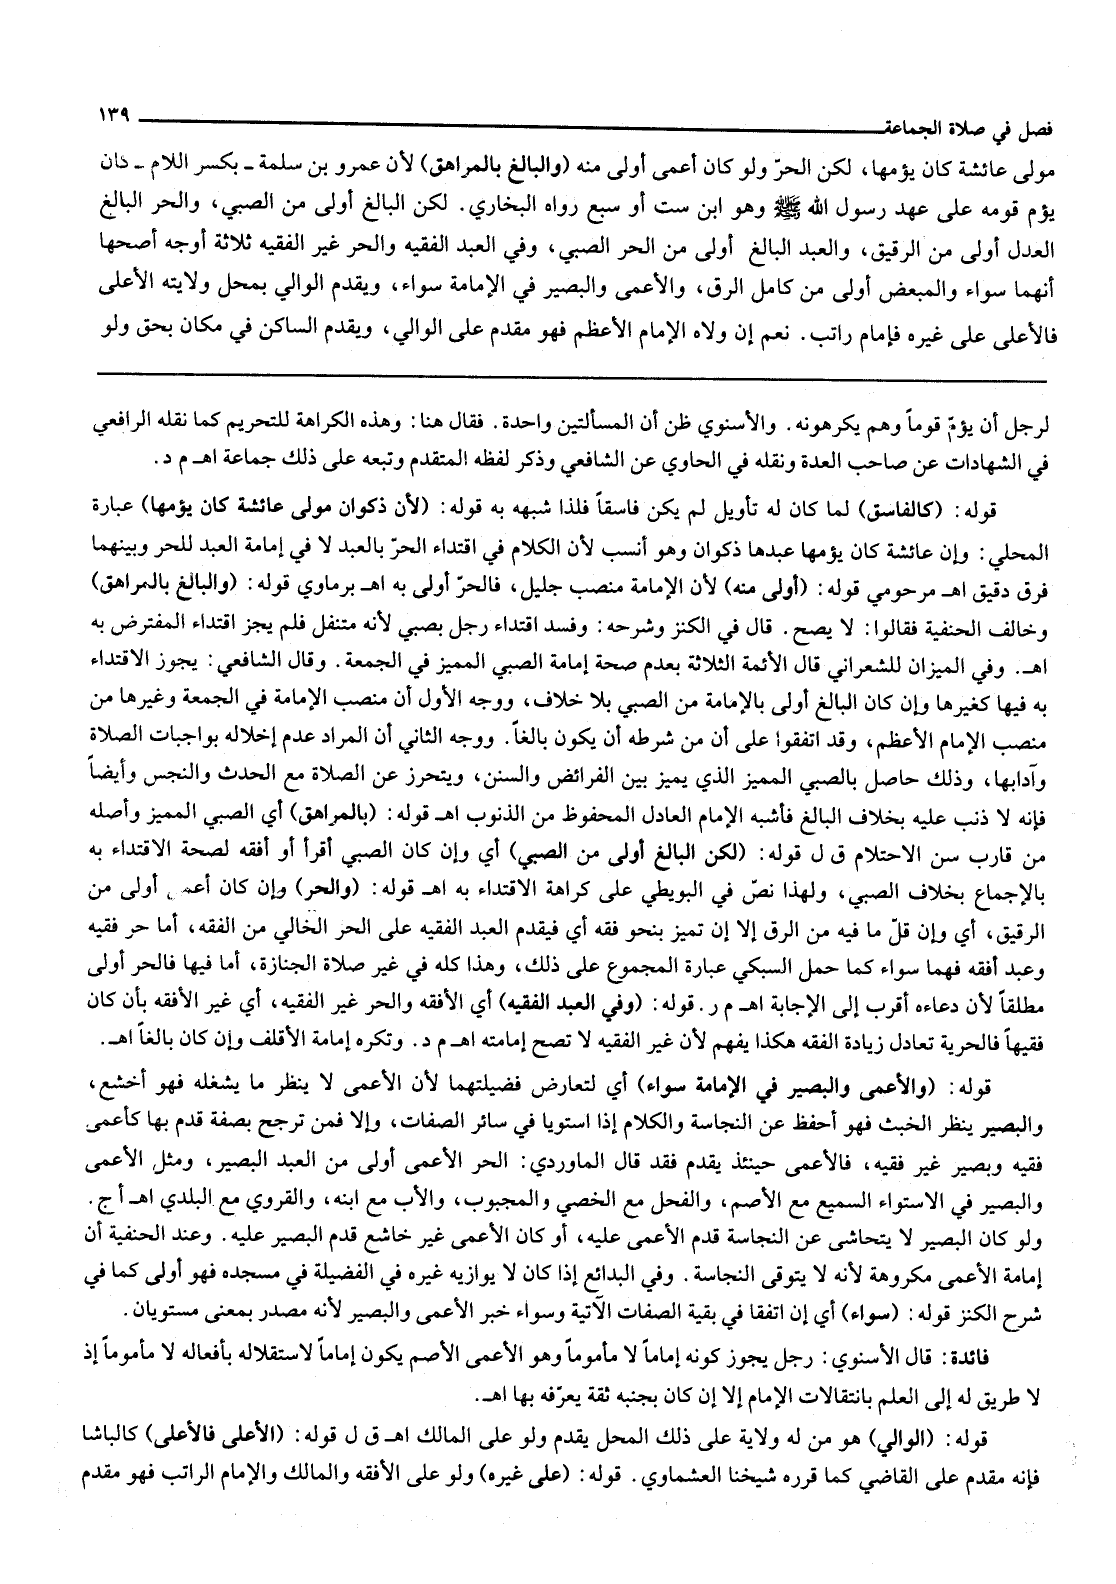 فصل في صلاة الجماعة ١٣٩
مولى عائشة كان يؤمها، لكن الحرّ ولو كان أعمى أولى منه (والبالغ بالمراهق) لأن عمرو بن سلمة ـ بكسر اللام ـ كان
يؤم قومه على عهد رسول الله ﷺ وهو ابن ست أو سبع رواه البخاري. لكن البالغ أولى من الصبي، والحر البالغ
العدل أولى من الرقيق، والعبد البالغ أولى من الحر الصبي، وفي العبد الفقيه والحر غير الفقيه ثلاثة أوجه أصحها
أنهما سواء والمبعض أولى من كامل الرق، والأعمى والبصير في الإمامة سواء، ويقدم الوالي بمحل ولايته الأعلى
فالأعلى على غيره فإمام راتب. نعم إن ولاه الإمام الأعظم فهو مقدم على الوالي، ويقدم الساكن في مكان بحق ولو
لرجل أن يؤمّ قوماً وهم يكرهونه. والأسنوي ظن أن المسألتين واحدة. فقال هنا: وهذه الكراهة للتحريم كما نقله الرافعي
في الشهادات عن صاحب العدة ونقله في الحاوي عن الشافعي وذكر لفظه المتقدم وتبعه على ذلك جماعة اهـ م د.
قوله: (كالفاسق) لما كان له تأويل لم يكن فاسقاً فلذا شبهه به قوله: (لأن ذكوان مولى عائشة كان يؤمها) عبارة
المحلي: وإن عائشة كان يؤمها عبدها ذكوان وهو أنسب لأن الكلام في اقتداء الحرّ بالعبد لا في إمامة العبد للحر وبينهما
فرق دقيق اهـ مرحومي قوله: (أولى منه) لأن الإمامة منصب جليل، فالحرّ أولى به اهـ برماوي قوله: (والبالغ بالمراهق)
وخالف الحنفية فقالوا: لا يصح. قال في الكنز وشرحه: وفسد اقتداء رجل بصبي لأنه متنفل فلم يجز اقتداء المفترض به
اهـ. وفي الميزان للشعراني قال الأئمة الثلاثة بعدم صحة إمامة الصبي المميز في الجمعة. وقال الشافعي: يجوز الاقتداء
به فيها كغيرها وإن كان البالغ أولى بالإمامة من الصبي بلا خلاف، ووجه الأول أن منصب الإمامة في الجمعة وغيرها من
منصب الإمام الأعظم، وقد اتفقوا على أن من شرطه أن يكون بالغاً. ووجه الثاني أن المراد عدم إخلاله بواجبات الصلاة
وآدابها، وذلك حاصل بالصبي المميز الذي يميز بين الفرائض والسنن، ويتحرز عن الصلاة مع الحدث والنجس وأيضاً
فإنه لا ذنب عليه بخلاف البالغ فأشبه الإمام العادل المحفوظ من الذنوب اهـ قوله: (بالمراهق) أي الصبي المميز وأصله
من قارب سن الاحتلام ق ل قوله: (لكن البالغ أولى من الصبي) أي وإن كان الصبي أقرأ أو أفقه لصحة الاقتداء به
بالإجماع بخلاف الصبي، ولهذا نصّ في البويطي على كراهة الاقتداء به اهـ قوله: (والحر) وإن كان أعمى أولى من
الرقيق، أي وإن قلّ ما فيه من الرق إلا إن تميز بنحو فقه أي فيقدم العبد الفقيه على الحر الخالي من الفقه، أما حر فقيه
وعبد أفقه فهما سواء كما حمل السبكي عبارة المجموع على ذلك، وهذا كله في غير صلاة الجنازة، أما فيها فالحر أولى
مطلقاً لأن دعاءه أقرب إلى الإجابة اهـ م ر. قوله: (وفي العبد الفقيه) أي الأفقه والحر غير الفقيه، أي غير الأفقه بأن كان
فقيهاً فالحرية تعادل زيادة الفقه هكذا يفهم لأن غير الفقيه لا تصح إمامته اهـ م د. وتكره إمامة الأقلف وإن كان بالغاً اهـ.
قوله: (والأعمى والبصير في الإمامة سواء) أي لتعارض فضيلتهما لأن الأعمى لا ينظر ما يشغله فهو أخشع،
والبصير ينظر الخبث فهو أحفظ عن النجاسة والكلام إذا استويا في سائر الصفات، وإلا فمن ترجح بصفة قدم بها كأعمى
فقيه وبصير غير فقيه، فالأعمى حينئذ يقدم فقد قال الماوردي: الحر الأعمى أولى من العبد البصير، ومثل الأعمى
والبصير في الاستواء السميع مع الأصم، والفحل مع الخصي والمجبوب، والأب مع ابنه، والقروي مع البلدي اهـ أ ج.
ولو كان البصير لا يتحاشى عن النجاسة قدم الأعمى عليه، أو كان الأعمى غير خاشع قدم البصير عليه. وعند الحنفية أن
إمامة الأعمى مكروهة لأنه لا يتوقى النجاسة. وفي البدائع إذا كان لا يوازيه غيره في الفضيلة في مسجده فهو أولى كما في
شرح الكنز قوله: (سواء) أي إن اتفقا في بقية الصفات الآتية وسواء خبر الأعمى والبصير لأنه مصدر بمعنى مستويان.
فائدة: قال الأسنوي: رجل يجوز كونه إماماً لا مأموماً وهو الأعمى الأصم يكون إماماً لاستقلاله بأفعاله لا مأموماً إذ
لا طريق له إلى العلم بانتقالات الإمام إلا إن كان بجنبه ثقة يعرّفه بها اهـ.
قوله: (الوالي) هو من له ولاية على ذلك المحل يقدم ولو على المالك اهـ ق ل قوله: (الأعلى فالأعلى) كالباشا
فإنه مقدم على القاضي كما قرره شيخنا العشماوي. قوله: (على غيره) ولو على الأفقه والمالك والإمام الراتب فهو مقدم